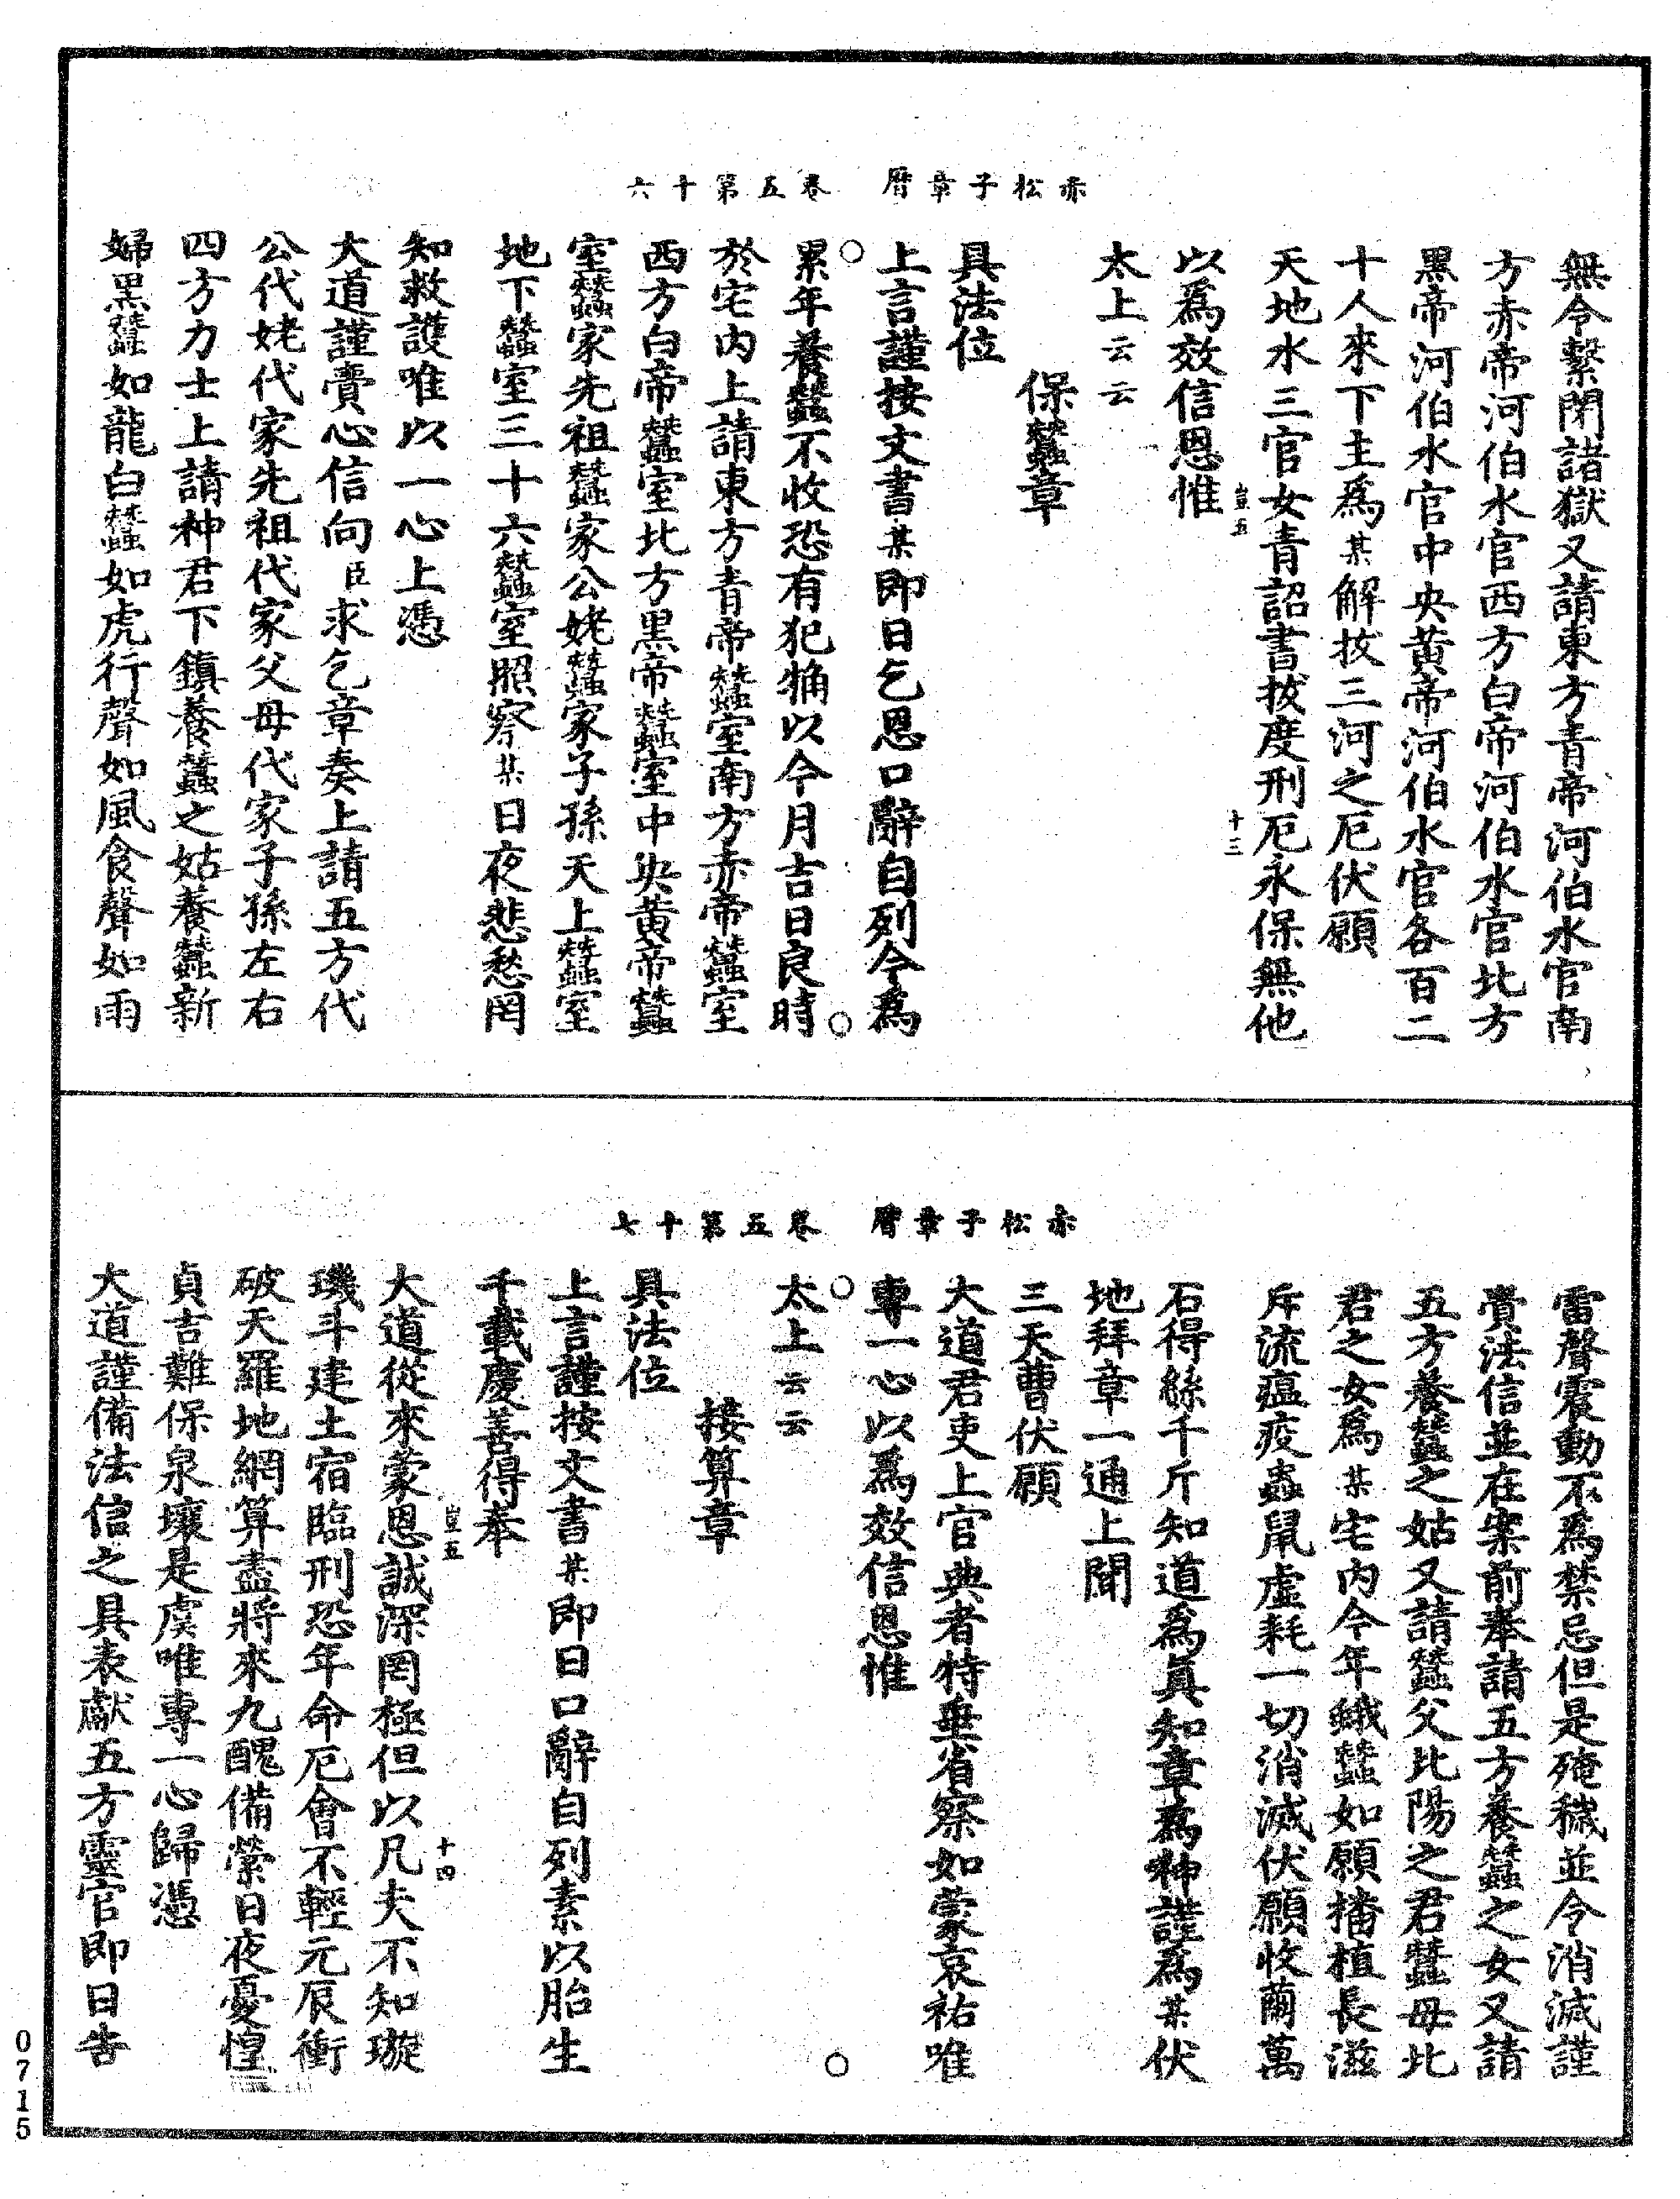 赤松子章曆　卷五第十六
無令繫閉諸獄又請東方青帝河伯水官南
方赤帝河伯水官西方白帝河伯水官北方
黑帝河伯水官中央黃帝河伯水官各百二
十人來下主爲某解拔三河之厄伏願
天地水三官女青詔書拔度刑厄永保無他
豈五　十三
以爲效信恩惟
太上云云
保蠶章
具法位
上言謹按文書某即日乞恩口辭自列今爲
累年養蠶不收恐有犯觕以今月吉日良時
於宅內上請東方青帝蠶室南方赤帝蠶室
西方白帝蠶室北方黑帝蠶室中央黃帝蠶
室蠶家先祖蠶家公姥蠶家子孫天上蠶室
地下蠶室三十六蠶室照察某日夜悲愁罔
知救護唯以一心上憑
大道謹賫心信向臣求乞章奏上請五方代
公代姥代家先祖代家父母代家子孫左右
四方力士上請神君下鎮養蠶之姑養蠶新
婦黑蠶如龍白蠶如虎行聲如風食聲如雨
赤松子章曆　卷五第十七
雷聲震動不爲禁忌但是殗穢並令消滅謹
賫法信並在案前奉請五方養蠶之女又請
五方養蠶之姑又請蠶父比陽之君蠶母比
君之女爲某宅內今年蛾蠶如願播植長滋
斥流瘟疫蟲鼠虛耗一切消滅伏願收繭萬
石得絲千斤知道爲眞知章爲神謹爲某伏
地拜章一通上聞
三天曹伏願
大道君吏上官典者特垂省察如蒙哀祐唯
專一心以爲效信恩惟
太上云云
接算章
具法位
上言謹按文書某即日口辭自列素以胎生
千載慶善得奉
豈五　十四
大道從來蒙恩誠深罔極但以凡夫不知璇
璣斗建土宿臨刑恐年命厄會不輕元辰衝
破天羅地網算盡將來九醜備縈日夜憂惶
貞吉難保泉壤是虞唯專一心歸憑
大道謹備法信之具表獻五方靈官即日告
0715